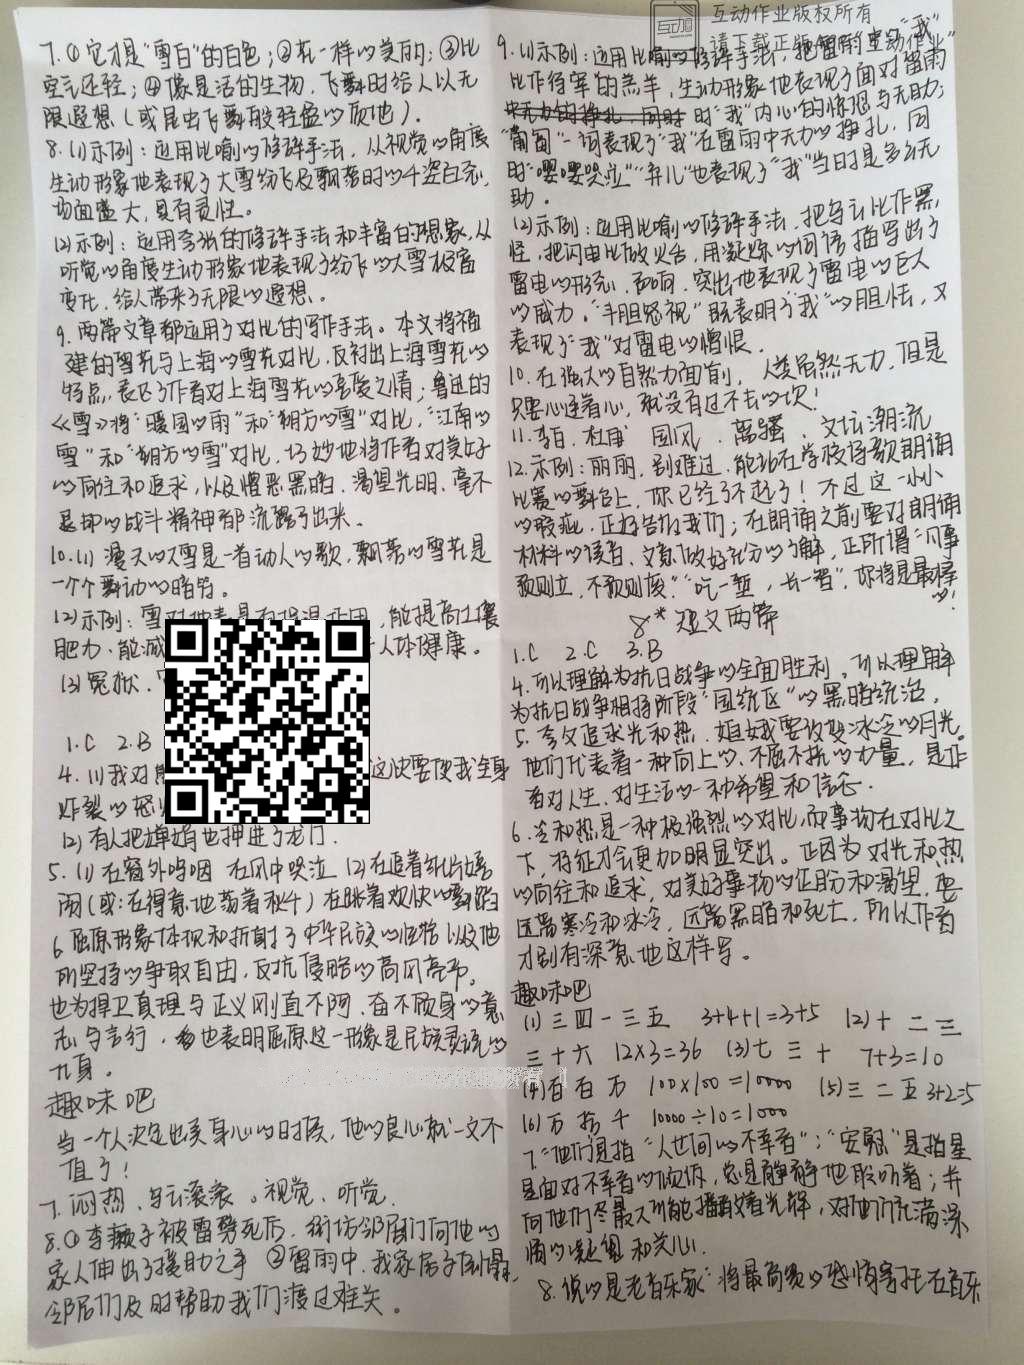 互动作业版权所有
请下载正版互动作业
7.①它才是“雪白”的白色；②花一样的美丽；③比
空气还轻；④像是活的生物，飞舞时给人以无
限遐想（或昆虫飞舞般轻盈的质地）.
8.(1)示例：运用比喻的修辞手法，从视觉的角度
生动形象地表现了大雪纷飞及飘落时的千姿百态，
场面盛大，具有灵性。
(2)示例：运用夸张的修辞手法和丰富的想象，从
听觉的角度生动形象地表现了纷飞的大雪极富
变化，给人带来了无限的遐想。
9.两篇文章都运用了对比的写作手法。本文将福
建的雪花与上海的雪花对比，反衬出上海雪花的
特点，表达了作者对上海雪花的喜爱之情；鲁迅的
《雪》将“暖国的雨”和“朔方的雪”对比，“江南的
雪”和“朔方的雪”对比，巧妙地将作者对美好
的向往和追求，以及憎恶黑暗、渴望光明、毫不
妥协的战斗精神都流露了出来。
10.(1)漫天的大雪是一首动人的歌，飘落的雪花是
一个个舞动的音符。
(2)示例：雪对地表具有保温作用，能提高土壤
肥力，能减 人体健康。
(3)冤狱.
1.C 2.B
4.(1)我对 这快要使我全身
炸裂的怒
(2)有人把婵娟也押进了龙门.
5.(1)在窗外呜咽 在风中哭泣 (2)在追着纸片嬉
闹(或：在得意地荡着秋千) 在跳着欢快的舞蹈
6.屈原形象体现和折射了中华民族的性格以及他
所坚持的争取自由，反抗侵略的高风亮节。
也为捍卫真理与正义刚直不阿、奋不顾身的意
志与言行，也表明屈原这一形象是民族灵魂的
化身。
趣味吧
当一个人决定出卖身心的时候，他的良心就一文不
值了！
7.闷热、乌云滚滚。视觉、听觉.
8.①李癞子被雷劈死后，街坊邻居们向他的
家人伸出了援助之手 ②雷雨中，我家房子倒塌，
邻居们及时帮助我们渡过难关。
9.(1)示例：运用比喻的修辞手法，把雷雨中的“我”
比作待宰的羔羊，生动形象地表现了面对雷雨
时“我”内心的惶恐与无助；
“匍匐”一词表现了“我”在雷雨中无力的挣扎，同
时“嘤嘤哭泣”“弃儿”也表现了“我”当时是多么无
助。
(2)示例：运用比喻的修辞手法，把乌云比作黑
怪，把闪电比做火舌，用凝炼的词语描写出了
雷电的形态、声响，突出地表现了雷电的巨大
的威力。“斗胆怒视”既表明了“我”的胆怯，又
表现了“我”对雷电的憎恨.
10.在强大的自然力面前，人类虽然无力，但是
只要心连着心，就没有过不去的坎！
11.李白、杜甫 国风、离骚、文坛潮流
12.示例：丽丽，别难过，能站在学校诗歌朗诵
比赛的舞台上，你已经了不起了！不过这一小小
的瑕疵，正好告诉我们；在朗诵之前要对朗诵
材料的读音、文意做好充分的了解，正所谓“凡事
预则立，不预则废”“吃一堑，长一智”，你将是最棒
的！
8*短文两篇
1.C 2.C 3.B
4.可以理解为抗日战争的全面胜利。可以理解
为抗日战争相持阶段“国统区”的黑暗统治。
5.夸父追求光和热，姮娥要改变冰冷的月光。
他们代表着一种向上的、不屈不挠的力量，是作
者对人生、对生活的一种希望和信念.
6.冷和热是一种极强烈的对比，而事物在对比之
下，特征才会更加明显突出。正因为对光和热
的向往和追求，对美好事物的企盼和渴望，要
远离寒冷和冰冷，远离黑暗和死亡，所以作者
才别有深意地这样写。
趣味吧
(1)三 四 一 三 五 3+4+1=3+5 (2)十 二 三
三 十 六 12×3=36 (3)七 三 十 7+3=10
(4)百 百 万 100×100=10000 (5)三 二 五 3+2=5
(6)万 拾 千 10000÷10=1000
7.“他们”是指“人世间的不幸者”；“安慰”是指星
星面对不幸者的倾诉，总是静静地聆听着；并
向他们尽最大可能播散着光辉，对他们充满深
情的凝望和关心.
8.说的是老音乐家“将最高贵的感情寄托在音乐